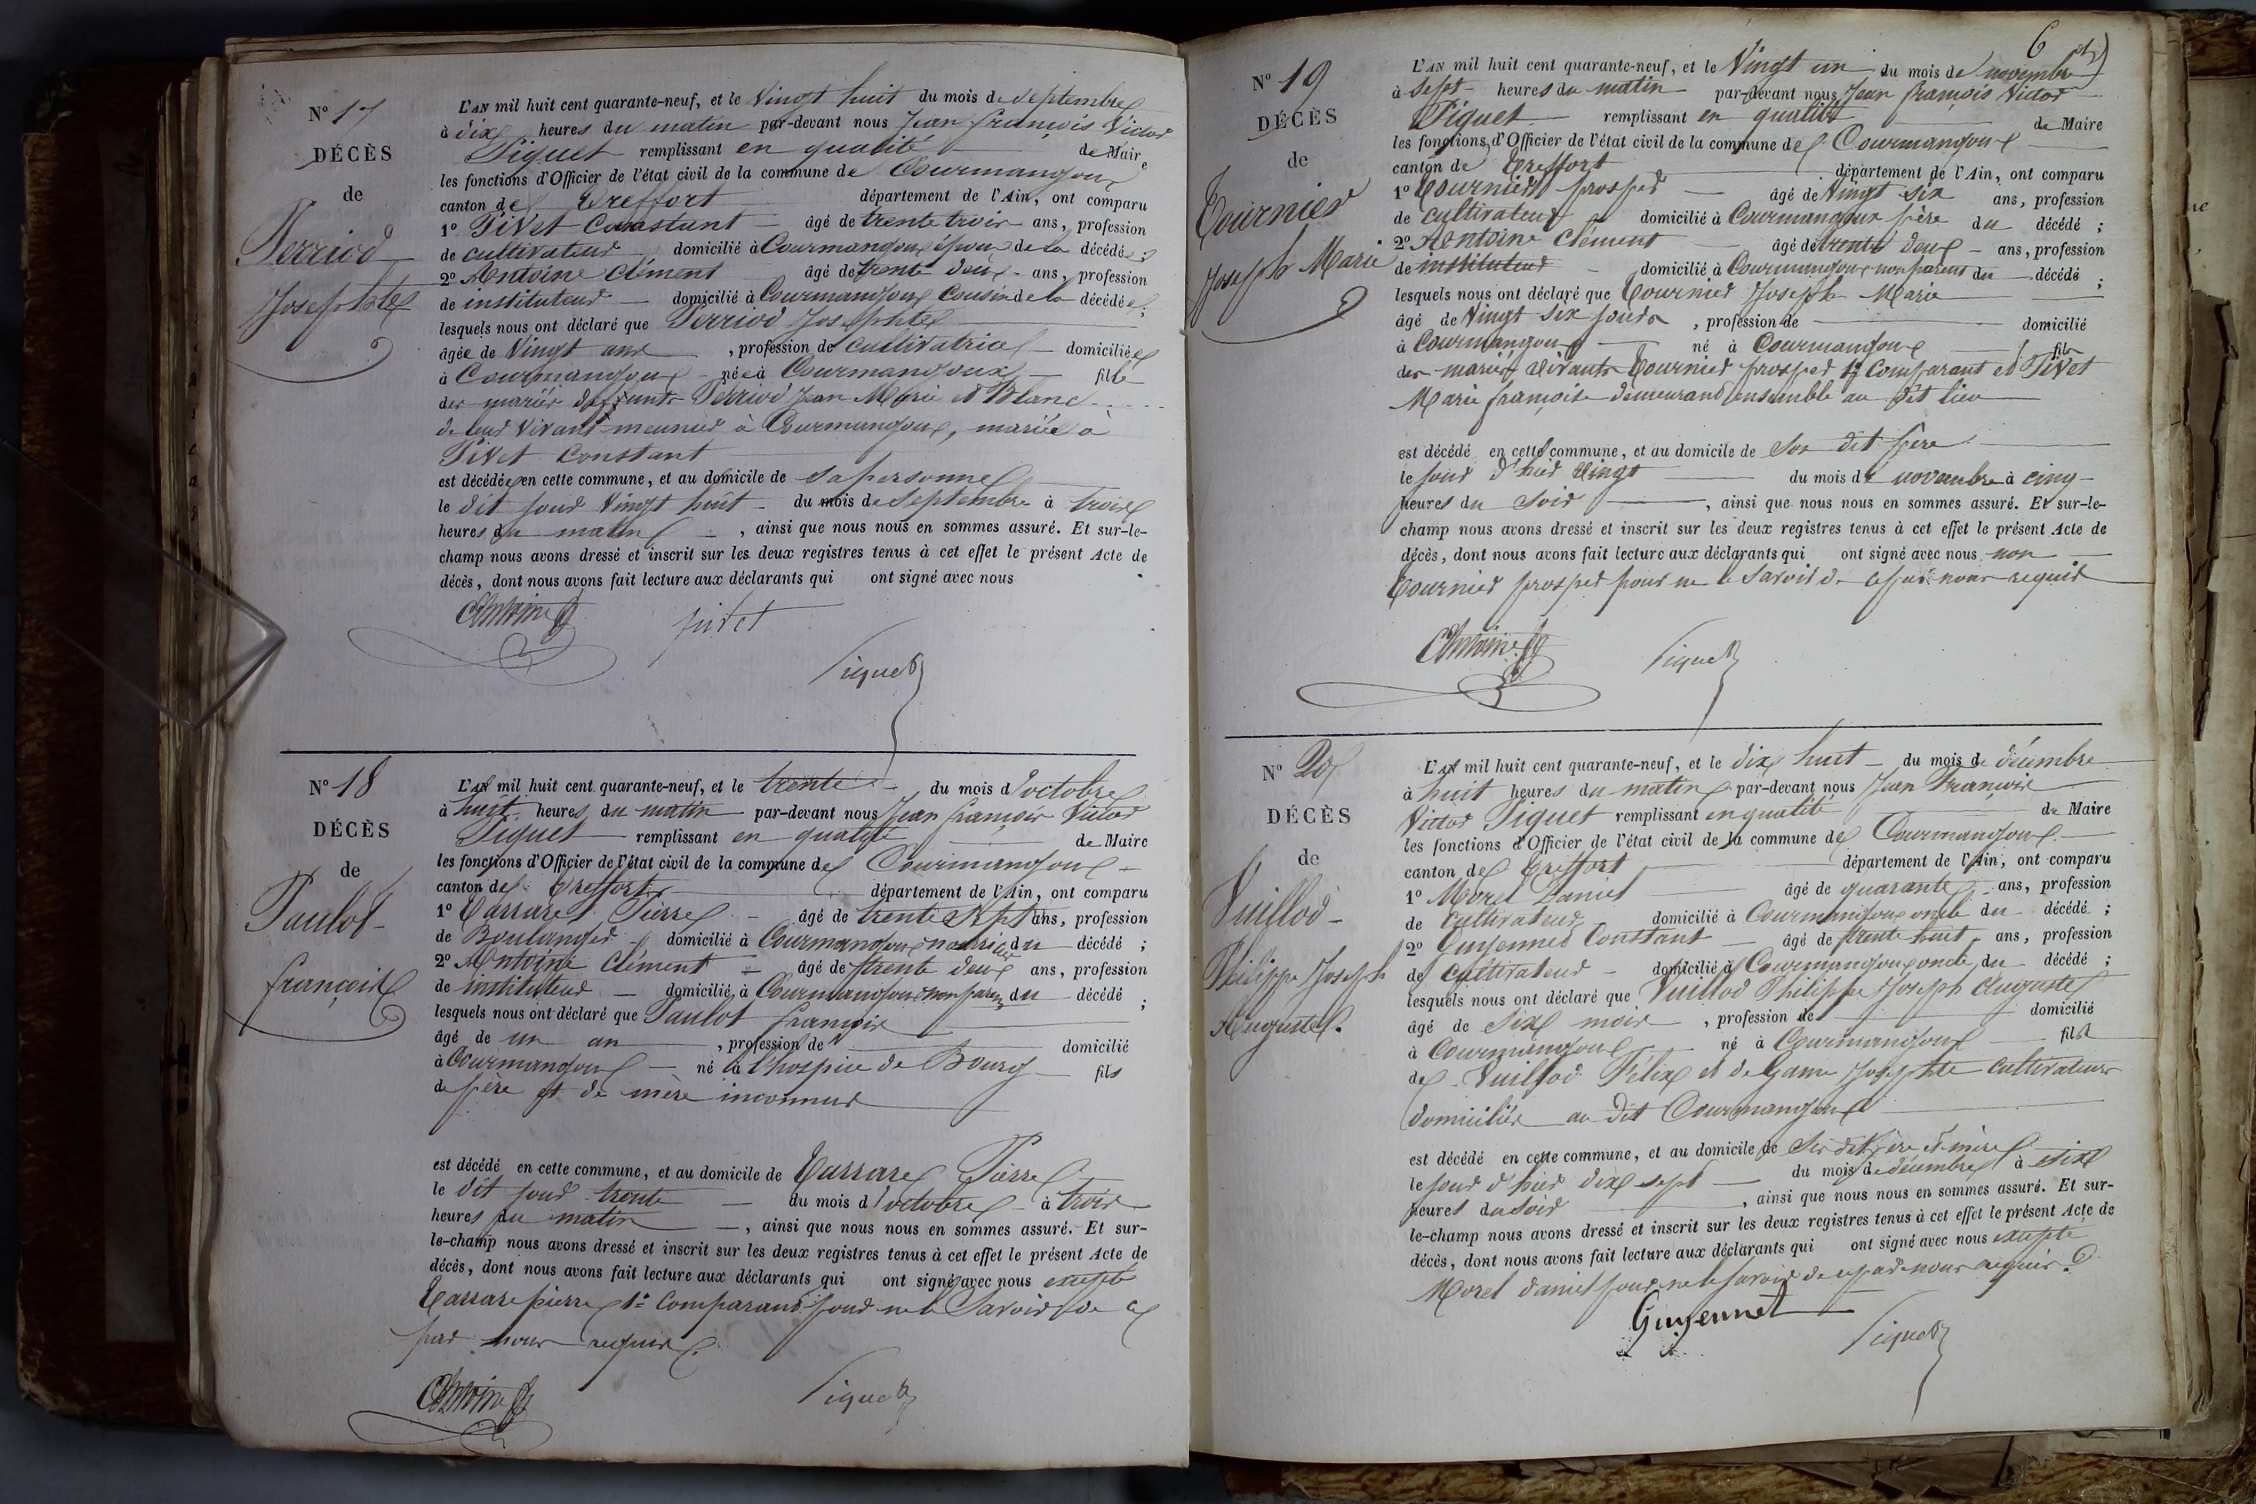 N° 17
DÉCÈS
de
Perriod
Josephte
L'AN mil huit cent quarante-neuf, et le Vingt huit du mois de septembre
à dix heures du matin par-devant nous Jean françois Victor
Piquet remplissant en qualité de Maire
les fonctions d'Officier de l'état civil de la commune de Courmangoux
canton de Treffort département de l'Ain, ont comparu
1° Pivet Constant âgé de trente trois ans, profession
de cultivateur domicilié à Courmangoux époux de la décédée ;
2° Antoine Clément âgé de trente deux ans, profession
de instituteur domicilié à Courmangoux cousin de la décédée ;
lesquels nous ont déclaré que Perriod Josephte
âgée de Vingt ans , profession de cultivatrice domiciliée
à Courmangoux née à Courmangoux fille
des mariés deffunts Perriod Jean Marie et Blanc
de leur vivant meunier à Courmangoux, mariée à
Pivet Constant
est décédée en cette commune, et au domicile de sa personne
le dit jour Vingt huit du mois de septembre à trois
heures du matin , ainsi que nous nous en sommes assuré. Et sur-le-
champ nous avons dressé et inscrit sur les deux registres tenus à cet effet le présent Acte de
décès, dont nous avons fait lecture aux déclarants qui ont signé avec nous
CAntoine pivet
Piquet
N° 18
DÉCÈS
de
Paulot
françois
L'AN mil huit cent quarante-neuf, et le trente du mois d'octobre
à huit heures du matin par-devant nous Jean françois Victor
Piquet remplissant en qualité de Maire
les fonctions d'Officier de l'état civil de la commune de Courmangoux
canton de Treffort département de l'Ain, ont comparu
1° Carrare Pierre âgé de trente sept ans, profession
de Boulanger domicilié à Courmangoux nourricier du décédé ;
2° Antoine Clément âgé de trente deux ans, profession
de instituteur domicilié à Courmangoux non parent du décédé ;
lesquels nous ont déclaré que Paulot françois
âgé de un an , profession de domicilié
à Courmangoux né à l'hospice de Bourg fils
de père et de mère inconnus
est décédé en cette commune, et au domicile de Carrare Pierre
le dit jour trente du mois d'octobre à trois
heures du matin , ainsi que nous nous en sommes assuré. Et sur-
le-champ nous avons dressé et inscrit sur les deux registres tenus à cet effet le présent Acte de
décès, dont nous avons fait lecture aux déclarants qui ont signé avec nous excepté
Carrare pierre 1er Comparant pour ne le Savoir de ce
par nous requis
CAntoine Piquet
6
N° 19
DÉCÈS
de
Tournier
Joseph Marie
L'AN mil huit cent quarante-neuf, et le Vingt un du mois de novembre
à sept heures du matin par-devant nous Jean françois Victor
Piquet remplissant en qualité de Maire
les fonctions d'Officier de l'état civil de la commune de Courmangoux
canton de Treffort département de l'Ain, ont comparu
1° Tournier prosper âgé de Vingt six ans, profession
de cultivateur domicilié à Courmangoux père du décédé ;
2° Antoine Clément âgé de trente deux ans, profession
de instituteur domicilié à Courmangoux non parent du décédé ;
lesquels nous ont déclaré que Tournier Joseph Marie
âgé de Vingt six jours , profession de domicilié
à Courmangoux né à Courmangoux fils
des mariés vivants Tournier prosper 1er Comparant et Pivet
Marie françoise demeurant ensemble au dit lieu
est décédé en cette commune, et au domicile de Son dit père
le jour d'hier Vingt du mois de novembre à cinq
heures du soir , ainsi que nous nous en sommes assuré. Et sur-le-
champ nous avons dressé et inscrit sur les deux registres tenus à cet effet le présent Acte de
décès, dont nous avons fait lecture aux déclarants qui ont signé avec nous non
Tournier prosper pour ne le Savoir de ce par nous requis
CAntoine Piquet
N° 20
DÉCÈS
de
Vuillod
Philippe Joseph
Auguste.
L'AN mil huit cent quarante-neuf, et le dix huit du mois de décembre
à huit heures du matin par-devant nous Jean François
Victor Piquet remplissant en qualité de Maire
les fonctions d'Officier de l'état civil de la commune de Courmangoux
canton de Treffort département de l'Ain, ont comparu
1° Morel Daniel âgé de quarante ans, profession
de cultivateur domicilié à Courmangoux oncle du décédé ;
2° Guyennet Constant âgé de trente huit ans, profession
de cultivateur domicilié à Courmangoux oncle du décédé ;
lesquels nous ont déclaré que Vuillod Philippe Joseph Auguste
âgé de Six mois , profession de domicilié
à Courmangoux né à Courmangoux fils
de Vuillod Félix et de Game Josephte cultivateurs
domiciliés au dit Courmangoux
est décédé en cette commune, et au domicile de Ses dits père et mère
le jour d'hier dix sept du mois de décembre à six
heures du soir , ainsi que nous nous en sommes assuré. Et sur-
le-champ nous avons dressé et inscrit sur les deux registres tenus à cet effet le présent Acte de
décès, dont nous avons fait lecture aux déclarants qui ont signé avec nous excepté
Morel daniel pour ne le savoir de ce par nous requis.
Guyennet Piquet